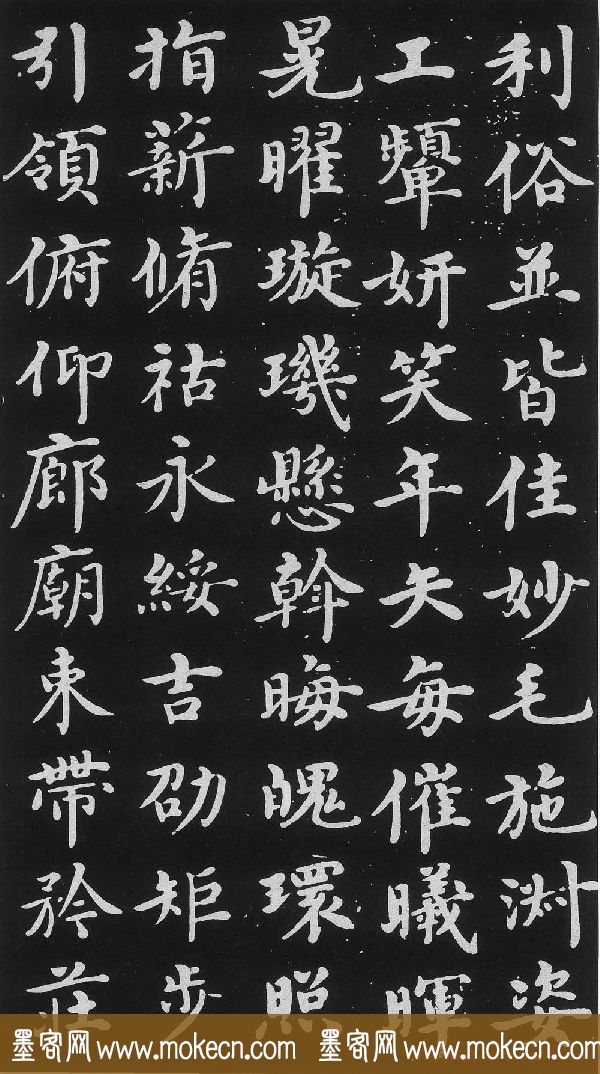 利俗並皆佳妙毛施淑姿
工顰妍笑年矢每催曦暉
晃曜璇璣懸斡晦魄環照
指薪脩祜永綏吉劭矩步
引領俯仰廊廟束帶矜莊
墨客网 www.mokecn.com 墨客网 www.mokecn.com